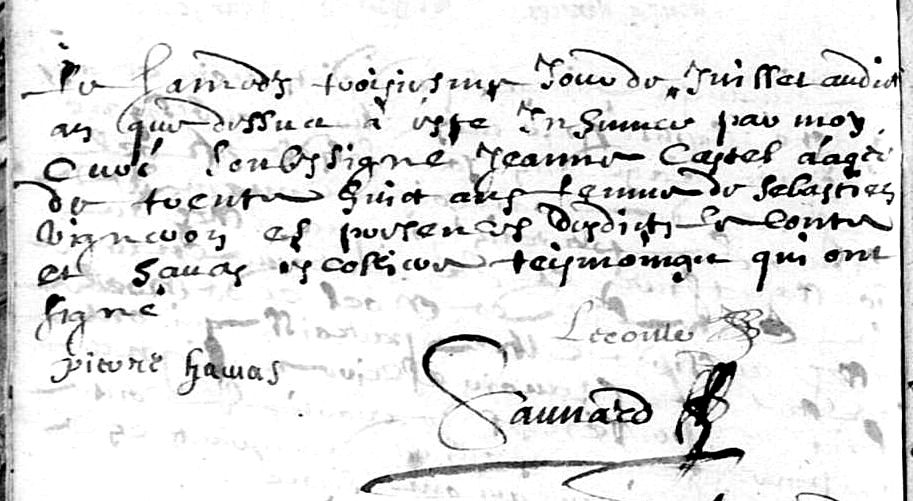 Le Samedy troisiesme Jour de Juillet audict
an que dessus a este Inhumee par moy
Curé soubssigné Jeanne Castel aagée
de trente huict ans femme de Sebastien
Vigneron es presences desdicts le conte
et hauas escollier tesmoings qui ont
signé
Lecomte
pierre hauas
Saunard